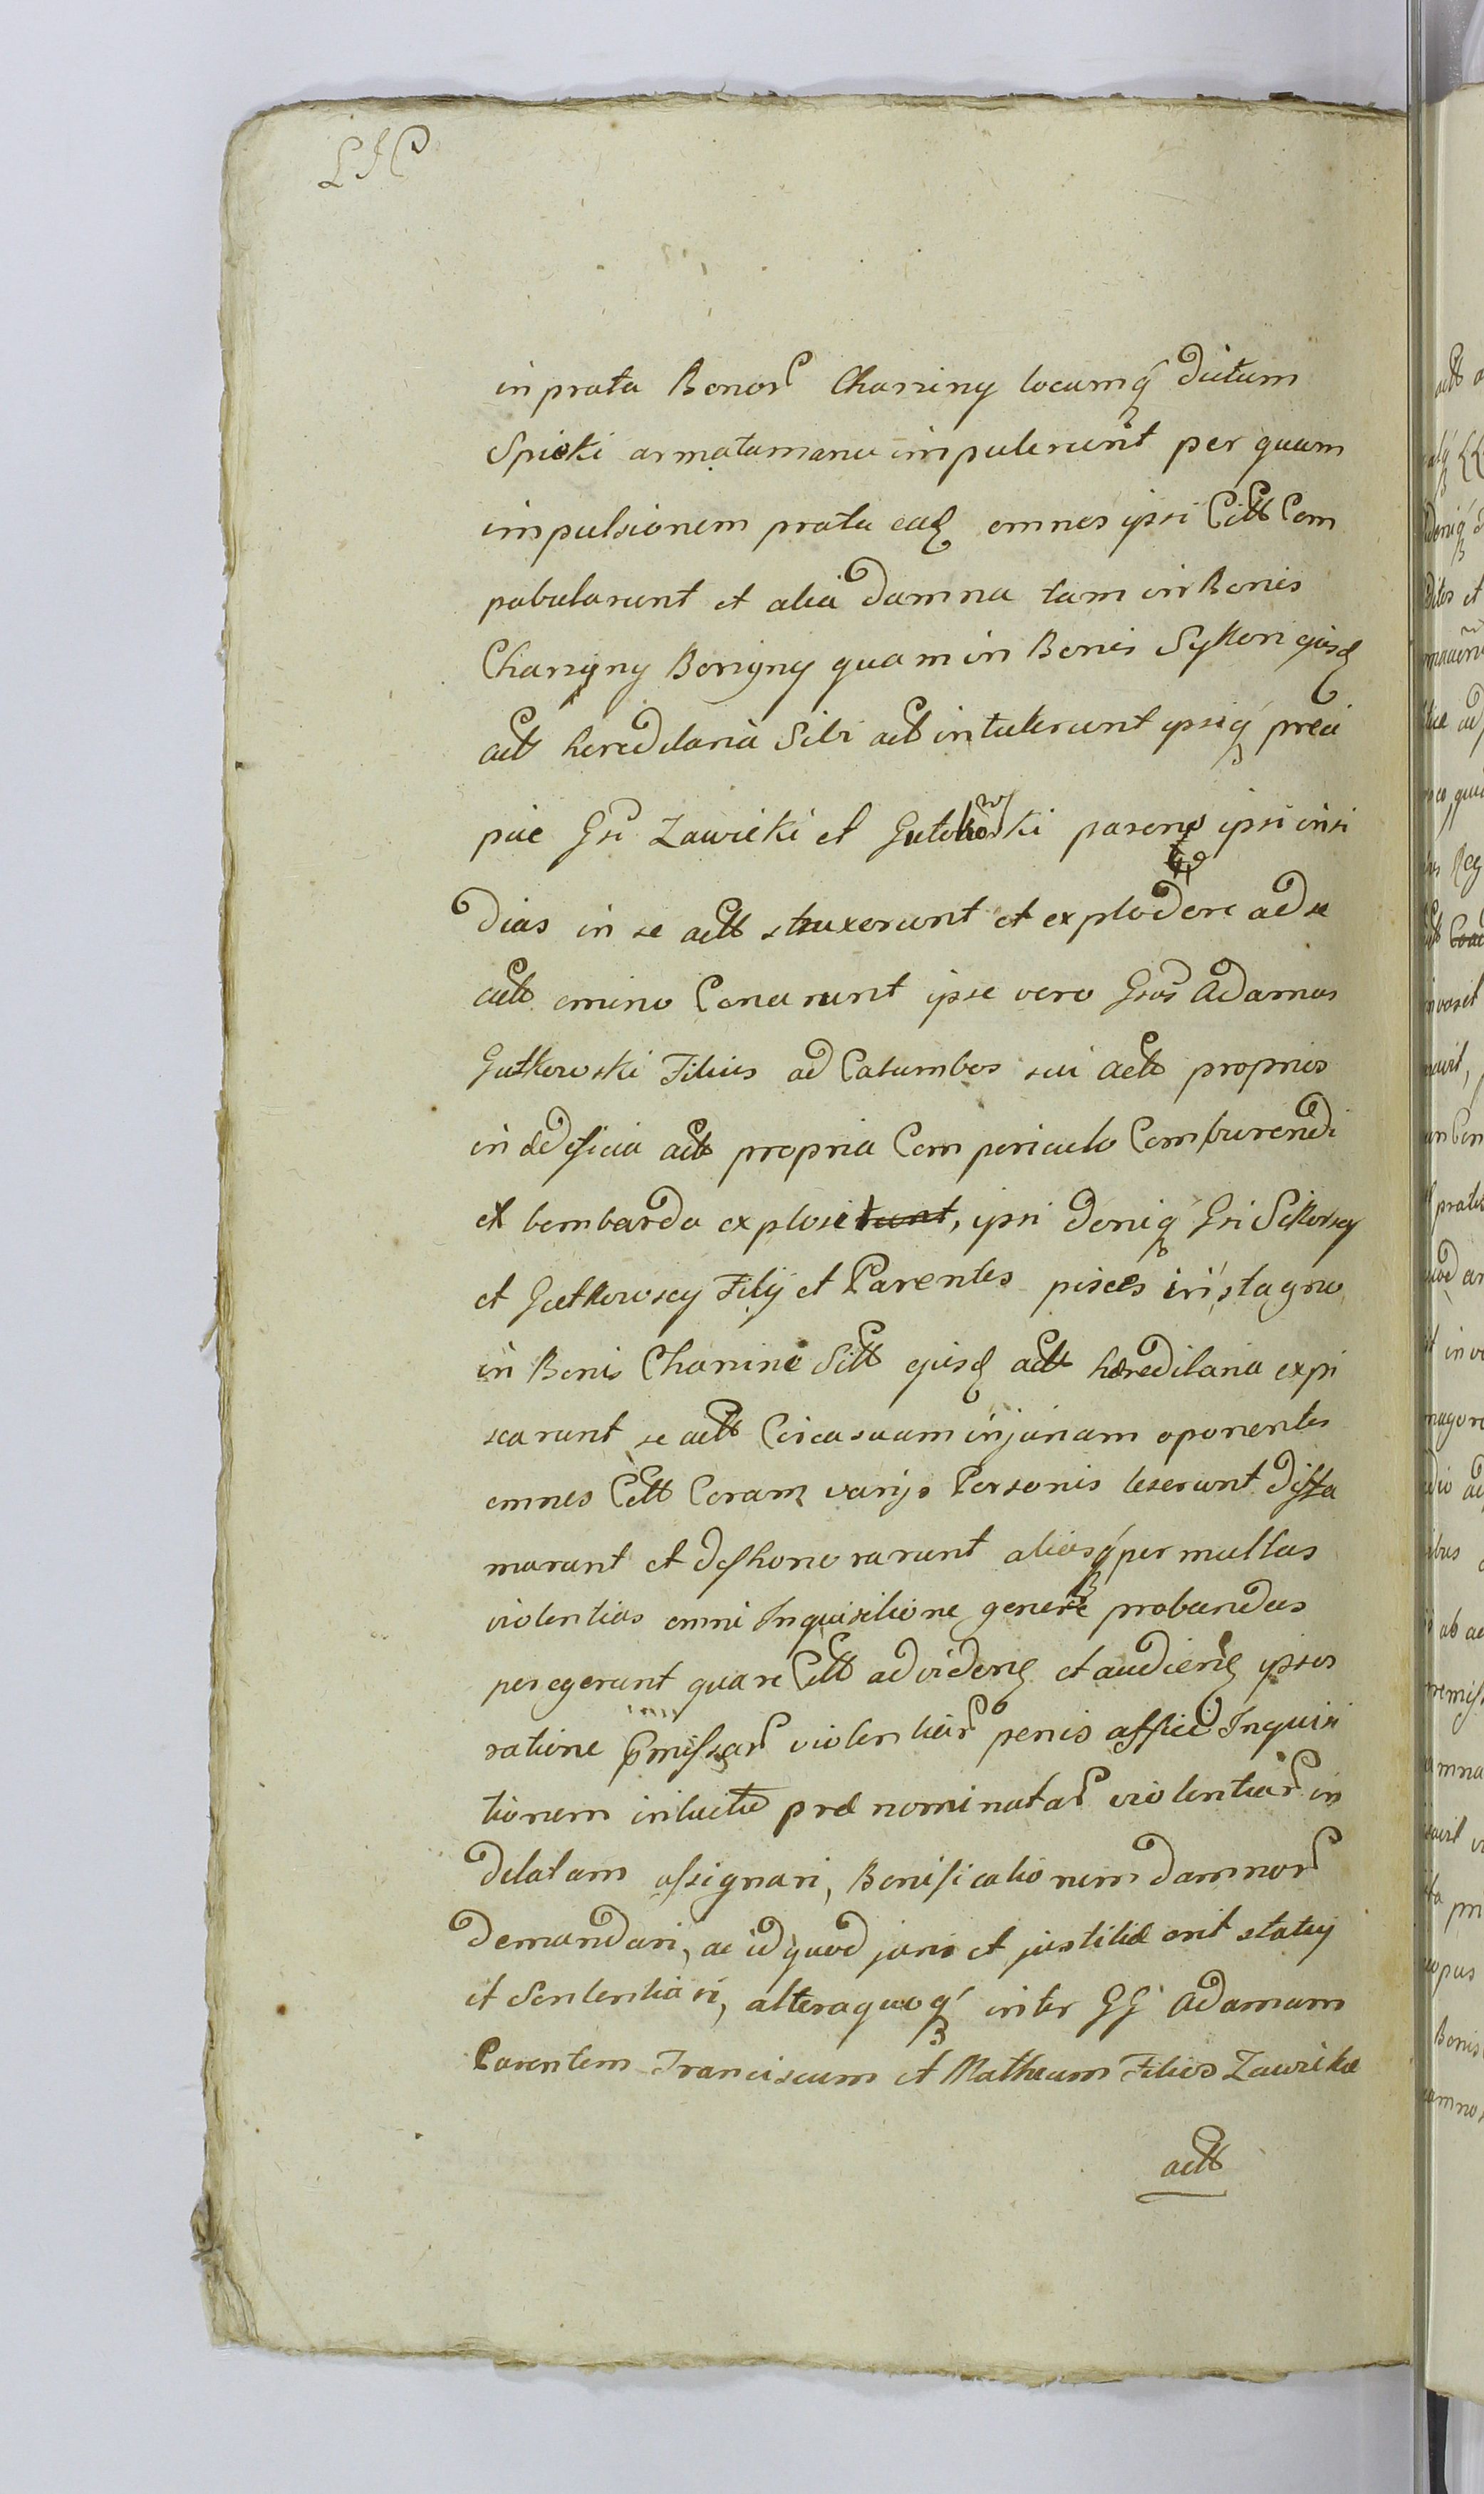 LJC
in prata Bonor Charziny locumq dictum
Spieki armatamanu impulerunt per quam
impulsionem prata ead omnes ipsi Citt Com
pabularunt et alia damna tam in Bonis
Charzyny Borzyny quam in Bonis Sykori ejusd
actt hereditaria Sibi actt intulerunt ipsiq preci
pue Gsi Zawicki et Gutkowski parens ipsi insi
dias in se actt struxerunt et explodere ad se
actt omino Conarunt ipse vero Gsus Adamus
Gutkowski Filius ad Calumbos sui actt proprios
in ædificia actt propria Com periculo Comburendi
ex bombarda explosit, ipsi deniq Gsi Sikorscy
et Gutkowscy Filij et Parentes pisces in stagno
in Bonis Charzine Sitt ejusd actt hæreditaria expi
scarunt se actt Circa suam injuriam oponentes
omnes Citt Coram varijs Personis leserunt diffa
marunt et deshonorarunt aliasq per multas
violentias omni Inquisitione genere probandas
peregerunt quare Citt ad vidend et audiend ipsos
ratione pmissar violentiar penis affici Inquisi
tionem intuitu præ nominatar violentiar in
delatam assignari, Bonificationem damnor
demandari, ac id quod juris et justitiæ erit statuj
et Sententiari, altera quoq inter GG Adamum
Parentem Franciscum et Matheum Filios Zawickie
actt